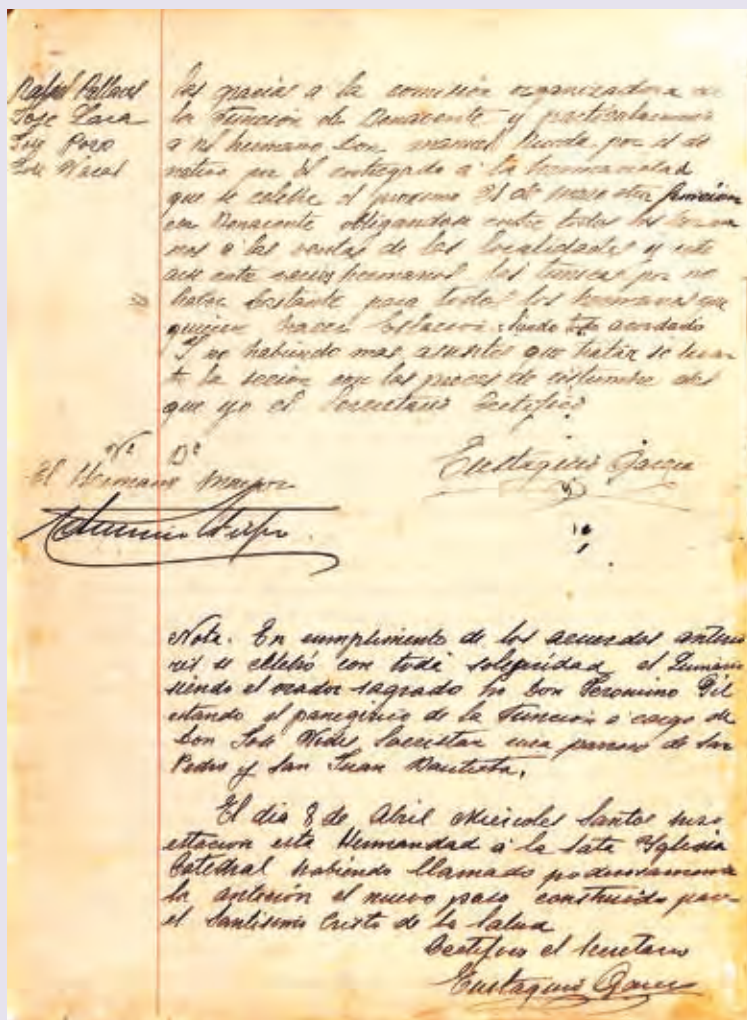 Rafael
Jose Lara
Luis Pozo
Jose
las gracias a la comisión organizadora de
la Función de Benacente y particularmente
a el hermano Don Manuel Rueda por el do
nativo por él entregado a la hermandad
que se celebre el proximo 21 de Marzo otra función
en Benacente obligandose entre todos los herma
nos a las ventas de las localidades y
entre hermanos las tunicas por no
haber bastante para todos los hermanos que
quieren hacer Estacion siendo todo acordado
Y no habiendo mas asuntos que tratar se levan
to la secion con las preces de costumbre del
que yo el Secretario Certifico
Vº Bº
El Hermano mayor
Eustaquio Garcia
Nota. En cumplimiento de los acuerdos anterio
res se celebró con toda solegnidad el
siendo el orador sagrado Don Geronimo Gil
estando el panegirico de la Función a cargo de
Don Jose cura parroco de San
Pedro y San Juan Bautista,
El dia 8 de Abril Miercoles Santo hizo
estacion esta Hermandad a la Sata Yglesia
Catedral habiendo llamado poderosamente
la antención el nuevo paso construido para
el Santisimo Cristo de la Salud
Certifico el Secretario
Eustaquio Garcia